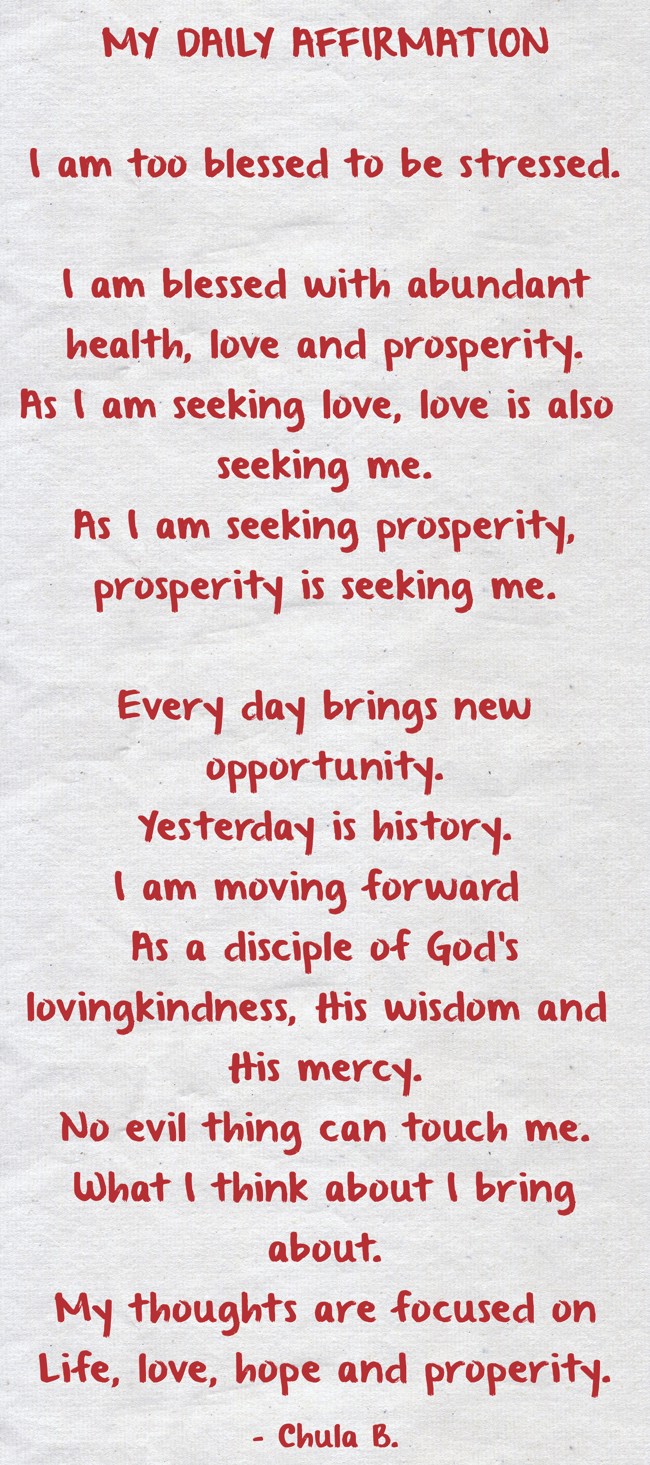 MY DAILY AFFIRMATION
I am too blessed to be stressed.
I am blessed with abundant
health, love and prosperity.
As I am seeking love, love is also
seeking me.
As I am seeking prosperity,
prosperity is seeking me.
Every day brings new
opportunity.
Yesterday is history.
I am moving forward
As a disciple of God's
lovingkindness, His wisdom and
His mercy.
No evil thing can touch me.
What I think about I bring
about.
My thoughts are focused on
Life, love, hope and properity.
- Chula B.